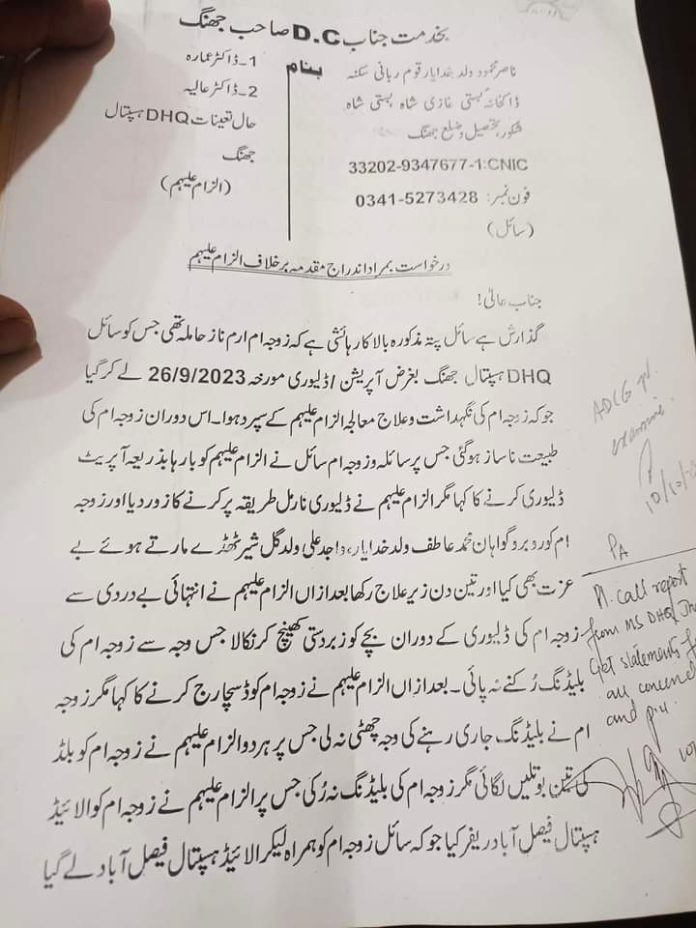 بخدمت جناب D.C صاحب جھنگ
ناصر محمود ولد خدایار قوم ربانی سکنہ
ڈاکخانہ بستی غازی شاہ بستی شاہ
شکور، تحصیل و ضلع جھنگ
33202-9347677-1:CNIC
فون نمبر: 0341-5273428
(سائل)
بنام
1۔ڈاکٹر عمارہ
2۔ڈاکٹر عالیہ
حال تعینات DHQ ہسپتال
جھنگ
(الزام علیہم)
درخواست بمراد اندراج مقدمہ برخلاف الزام علیہم
جناب عالی!
گذارش ہے سائل پتہ مذکورہ بالا کا رہائشی ہے کہ زوجہ ام ارم ناز حاملہ تھی جس کو سائل
DHQ ہسپتال جھنگ بغرض آپریشن / ڈلیوری مورخہ 26/9/2023 لے کر گیا
جو کہ زوجہ ام کی نگہداشت و علاج معالجہ الزام علیہم کے سپرد ہوا۔ اس دوران زوجہ ام کی
طبیعت ناساز ہوگئی جس پر سائلہ و زوجہ ام سائل نے الزام علیہم کو بارہا بذریعہ آپریٹ
ڈلیوری کرنے کا کہا مگر الزام علیہم نے ڈلیوری نارمل طریقہ پر کرنے کا زور دیا اور زوجہ
ام کو روبرو گواہان محمد عاطف ولد خدایار، واجد علی ولد گل شیر ٹھڈے مارتے ہوئے بے
عزت بھی کیا اور تین دن زیر علاج رکھا بعد ازاں الزام علیہم نے انتہائی بے دردی سے
زوجہ ام کی ڈلیوری کے دوران بچے کو زبردستی کھینچ کر نکالا جس وجہ سے زوجہ ام کی
بلیڈنگ رُکنے نہ پائی۔ بعد ازاں الزام علیہم نے زوجہ ام کو ڈسچارج کرنے کا کہا مگر زوجہ
ام نے بلیڈنگ جاری رہنے کی وجہ چھٹی نہ لی جس پر ہر دو الزام علیہم نے زوجہ ام کو بلڈ
کی تین بوتلیں لگائی مگر زوجہ ام کی بلیڈنگ نہ رُکی جس پر الزام علیہم نے زوجہ ام کو الائیڈ
ہسپتال فیصل آباد ریفر کیا جو کہ سائل زوجہ ام کو ہمراہ لیکر الائیڈ ہسپتال فیصل آباد لے گیا
ADCG pl.
examine.
10/10/
PA
call report
from MS DHQ
Get statements
all concerned
and p.u.